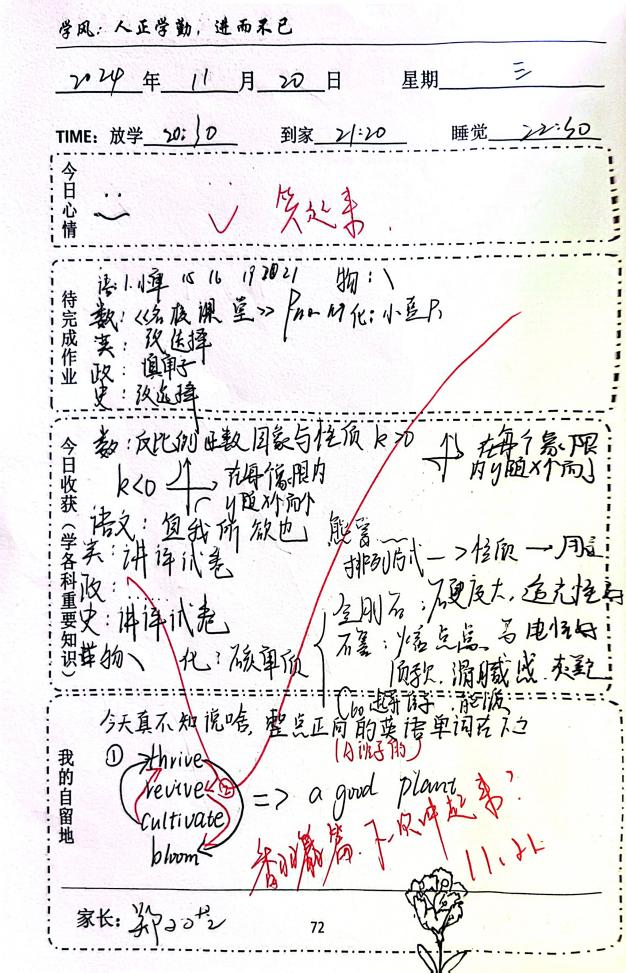 学风：人正学勤，进而不已
2024年11月20日 星期三
TIME：放学20:30 到家21:20 睡觉22:50
今日心情
笑起来.
待完成作业
15 16 19 20 21 物：\
数：《名校课堂》 化：小豆P1
英：改选择
政：填单子
史：改选择
今日收获（学各科重要知识）
数：反比例函数图象与性质 k>0 在每个象限
内y随x个而
k<0 在每个象限内
y随x个而个
语文：鱼我所欲也 熊掌
英：讲评试卷
排列方式 —>性质→用途
政：......
金刚石：硬度大，
史：讲评试卷
石墨：熔点高、导电性好
生物\ 化：碳单质
质软.滑腻感.
C60
我的自留地
今天真不知说啥，整点正向的英语单词在这
(为班子的)
① thrive
revive ②
cultivate
bloom
=> a good plant
下次冲起来！
11.21
家长：郑
72